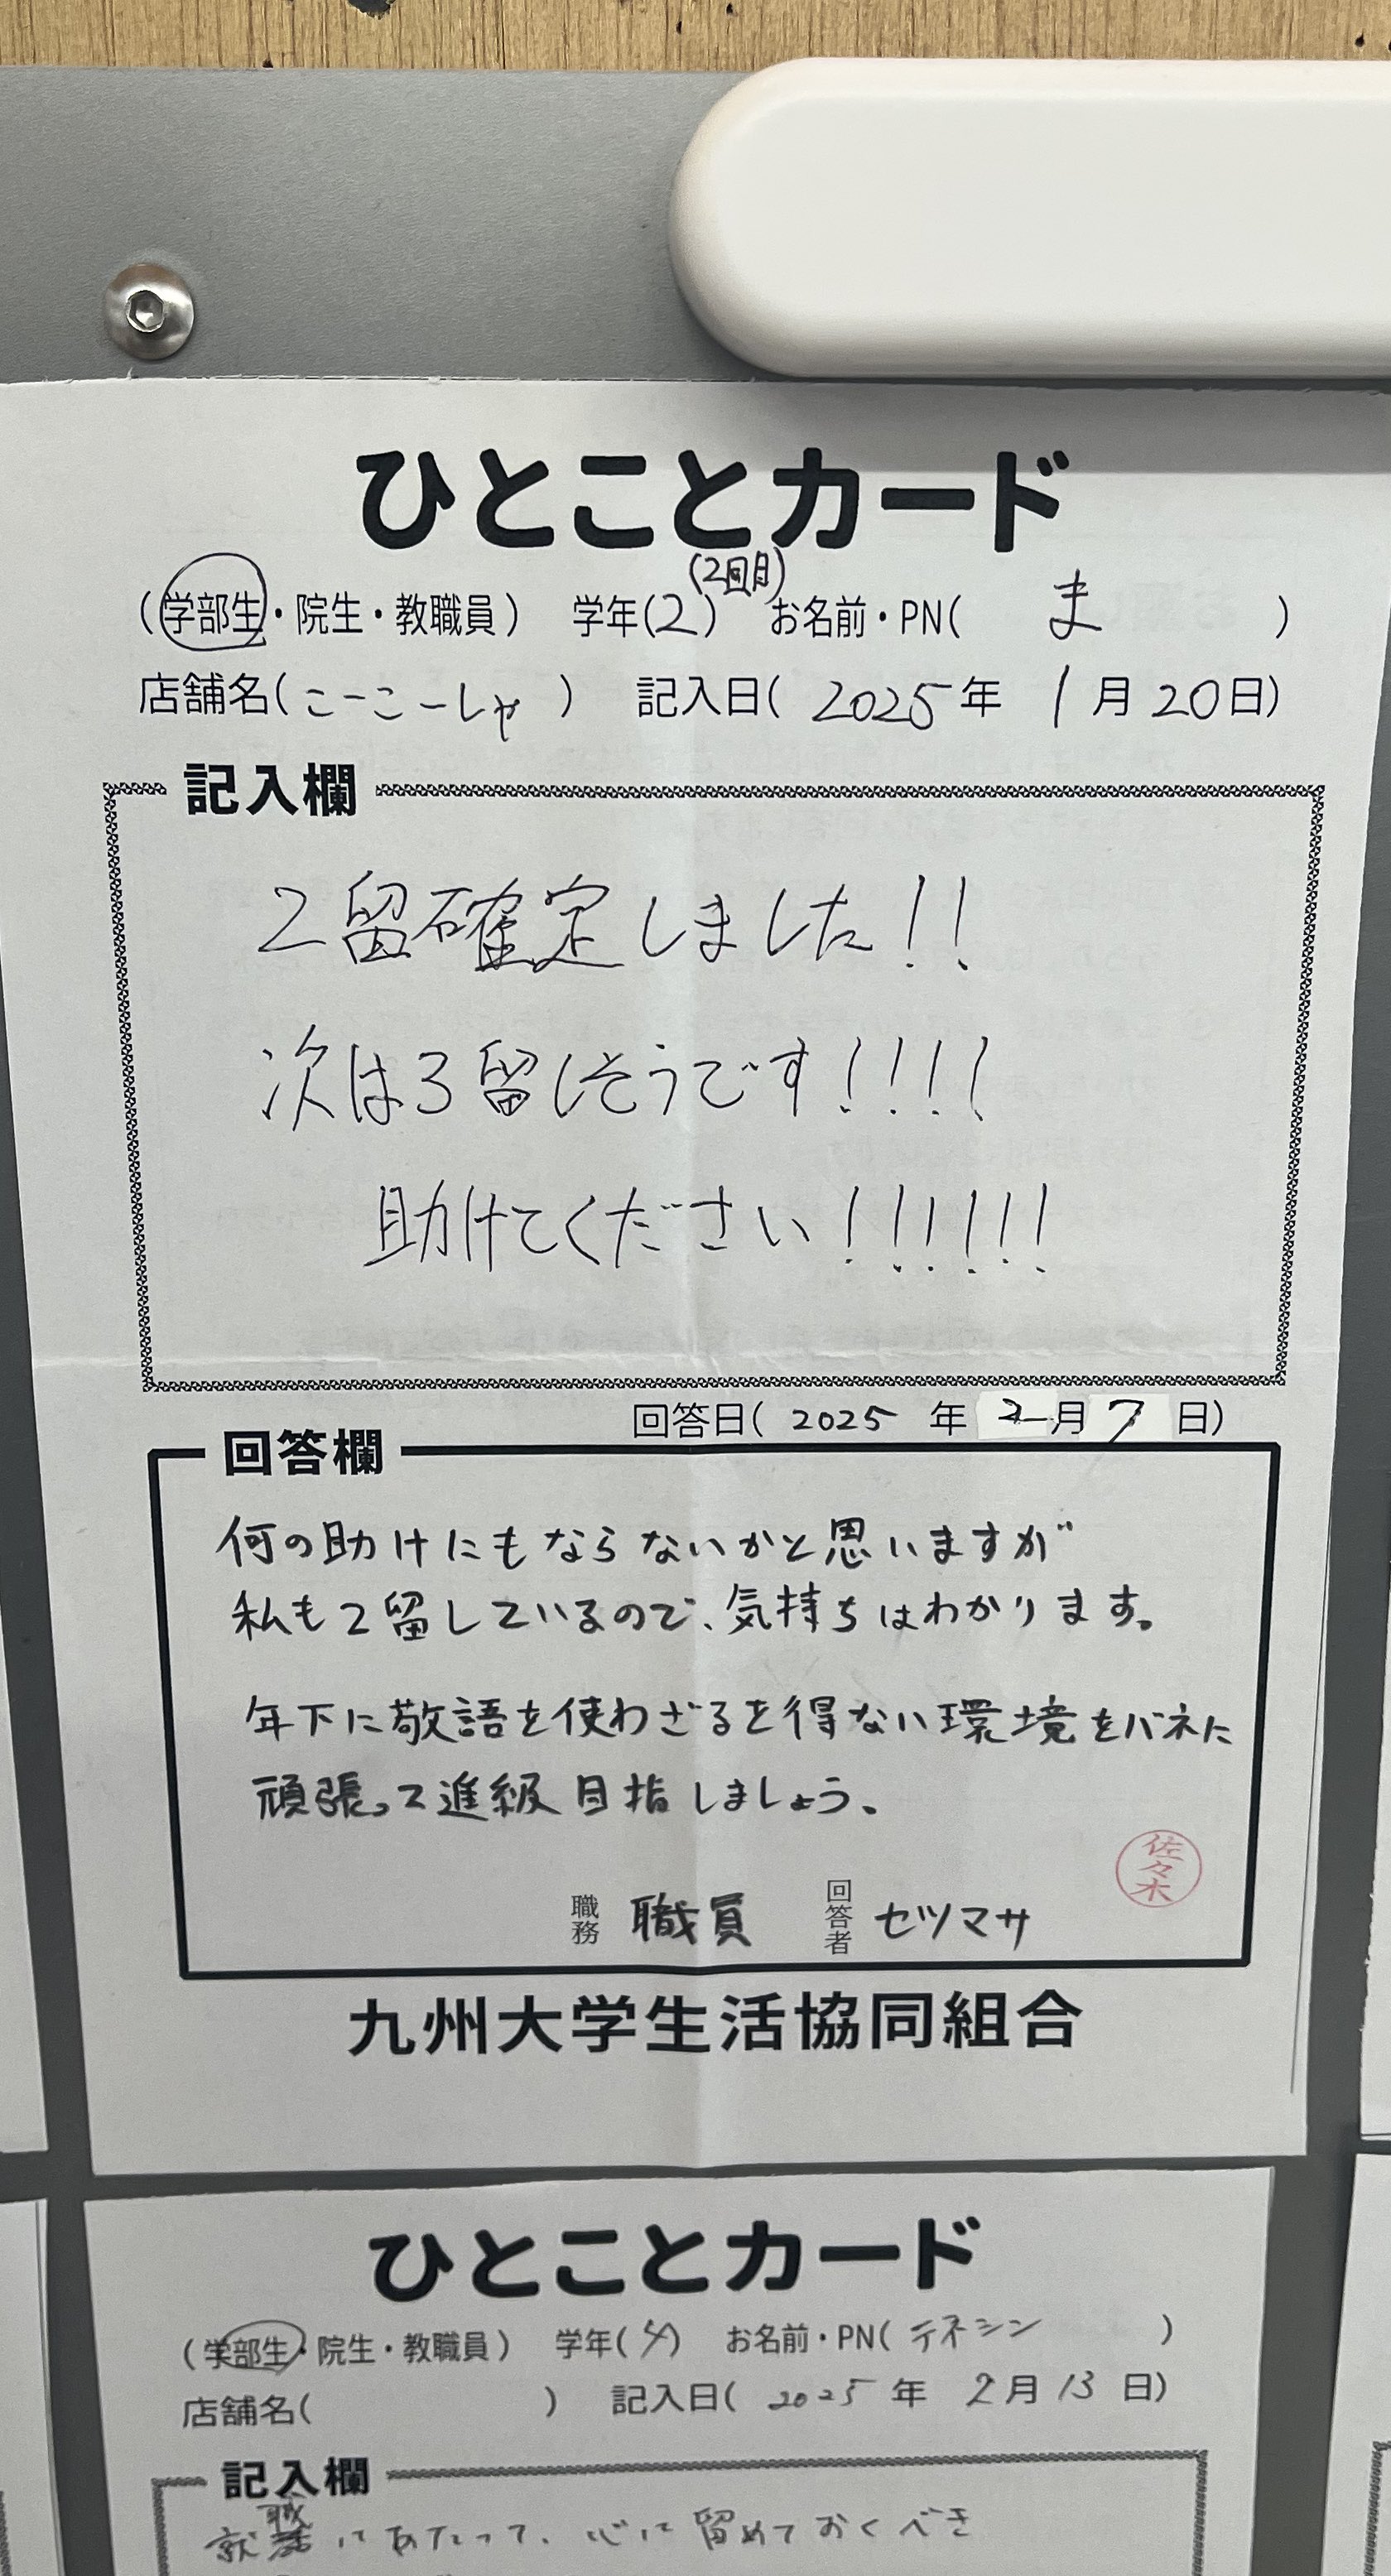 ひとことカード
(学部生・院生・教職員) 学年(2)(2回目) お名前・PN( ま )
店舗名(こーこーしゃ) 記入日( 2025年 1月20日)
記入欄
2留確定しました!!
次は3留しそうです!!!!
助けてください!!!!!!
回答日( 2025 年 2月7日)
回答欄
何の助けにもならないかと思いますが
私も2留しているので、気持ちはわかります。
年下に敬語を使わざるを得ない環境をバネに
頑張って進級目指しましょう。
職務 職員 回答者 セツマサ
佐々木
九州大学生活協同組合
ひとことカード
(学部生・院生・教職員) 学年(4) お名前・PN( テネシン )
店舗名( ) 記入日( 2025年 2月13日)
記入欄
就職にあたって、心に留めておくべき